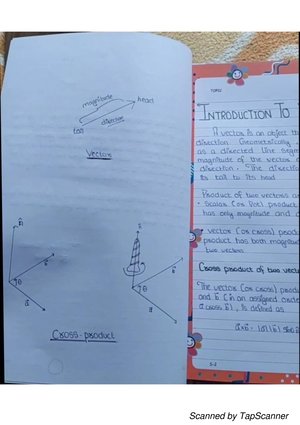 magnitude
head
direction
tail
Vector
n̂
b⃗
θ
a⃗
b⃗
θ
a⃗
Cross-product
TOPIC
INTRODUCTION To
A vector is an object th
direction. Geometrically
as a directed line segm
magnitude of the vector
direction. The directio
its tail to its head.
Product of two vectors
- Scalar (or Dot) product
has only magnitude and
• vector (or cross) prod
product has both magnitud
two vectors.
Cross product of two vector
The vector (or cross) produ
and b⃗ (in an assigned orde
a⃗ cross b⃗), is defined as
Scanned by TapScanner